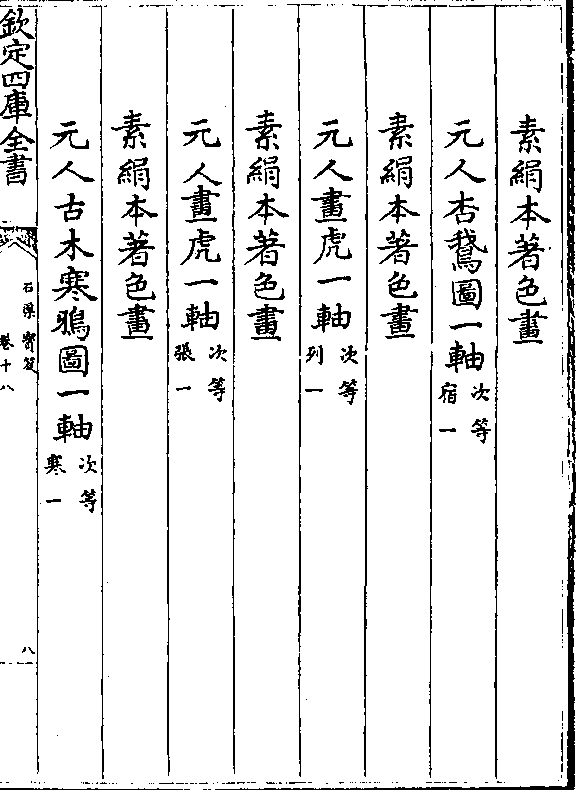 素絹本著色畫
元人杏鵝圖一軸次等宿一
素絹本著色畫
元人畫虎一軸次等列一
素絹本著色畫
元人畫虎一軸次等張一
素絹本著色畫
元人古木寒鴉圖一軸次等寒一
欽定四庫全書
石渠寶笈
卷十八
八